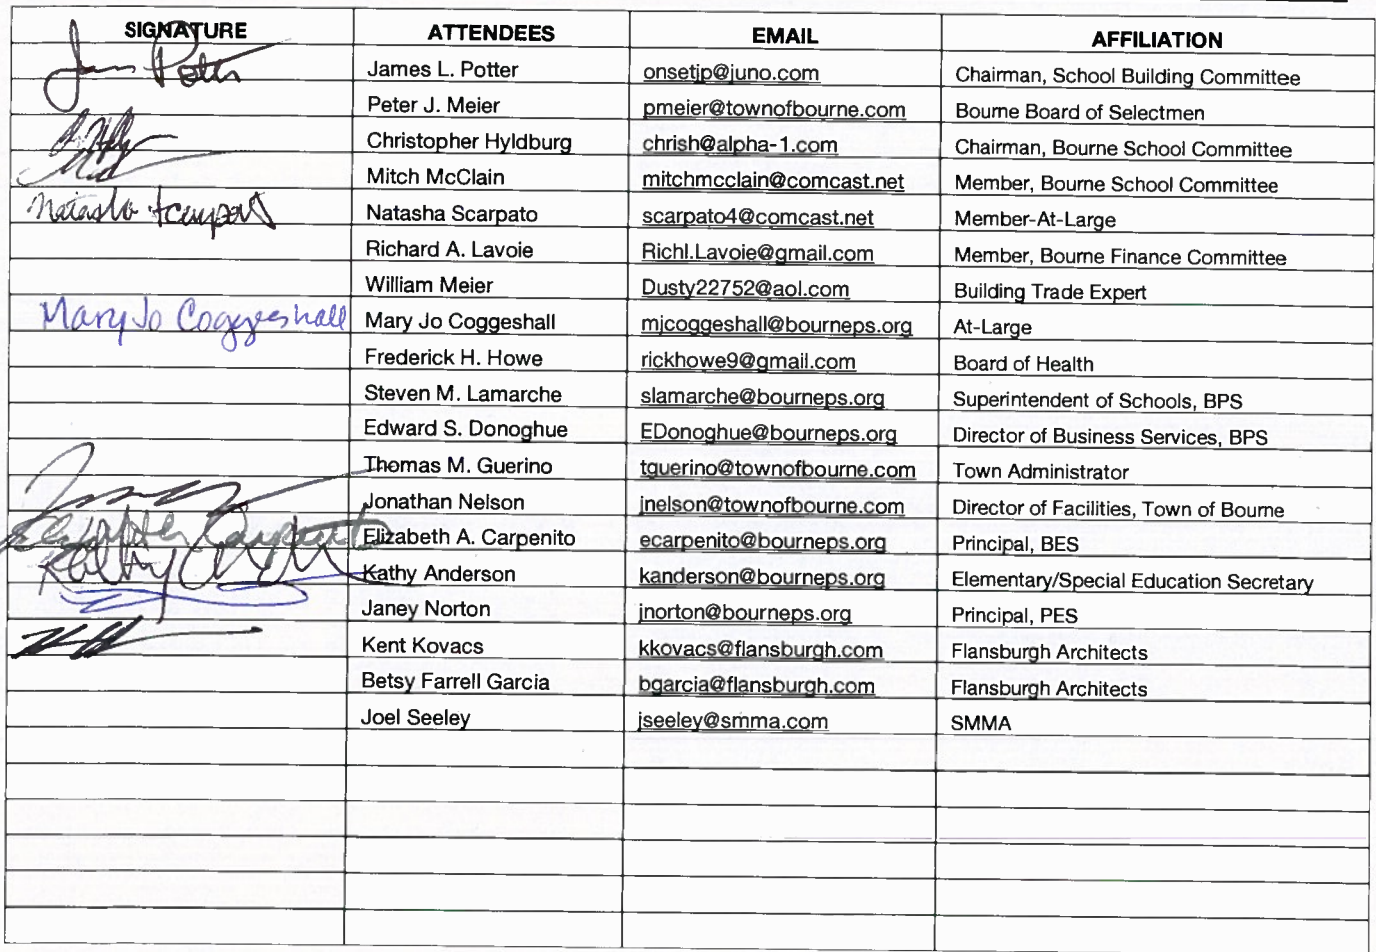 SIGNATURE ATTENDEES EMAIL AFFILIATION
James Potter James L. Potter onsetjp@juno.com Chairman, School Building Committee
Peter J. Meier pmeier@townofbourne.com Bourne Board of Selectmen
Christopher Hyldburg chrish@alpha-1.com Chairman, Bourne School Committee
Mitch McClain mitchmcclain@comcast.net Member, Bourne School Committee
Natasha Scarpato Natasha Scarpato scarpato4@comcast.net Member-At-Large
Richard A. Lavoie Richl.Lavoie@gmail.com Member, Bourne Finance Committee
William Meier Dusty22752@aol.com Building Trade Expert
Mary Jo Coggeshall Mary Jo Coggeshall mjcoggeshall@bourneps.org At-Large
Frederick H. Howe rickhowe9@gmail.com Board of Health
Steven M. Lamarche slamarche@bourneps.org Superintendent of Schools, BPS
Edward S. Donoghue EDonoghue@bourneps.org Director of Business Services, BPS
Thomas M. Guerino tguerino@townofbourne.com Town Administrator
Jonathan Nelson jnelson@townofbourne.com Director of Facilities, Town of Bourne
Elizabeth Carpenito Elizabeth A. Carpenito ecarpenito@bourneps.org Principal, BES
Kathy Kathy Anderson kanderson@bourneps.org Elementary/Special Education Secretary
Janey Norton jnorton@bourneps.org Principal, PES
Kent Kovacs kkovacs@flansburgh.com Flansburgh Architects
Betsy Farrell Garcia bgarcia@flansburgh.com Flansburgh Architects
Joel Seeley jseeley@smma.com SMMA